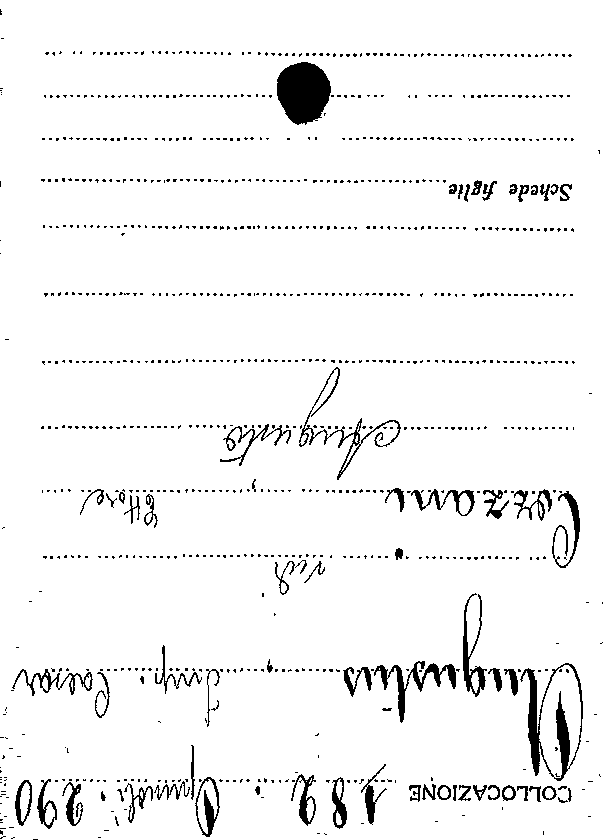 COLLOCAZIONE 182. Opuscoli. 290
Augustus, Imp. Caesar
vedi
Cozzani, Ettore
Augusto
Schede figlie